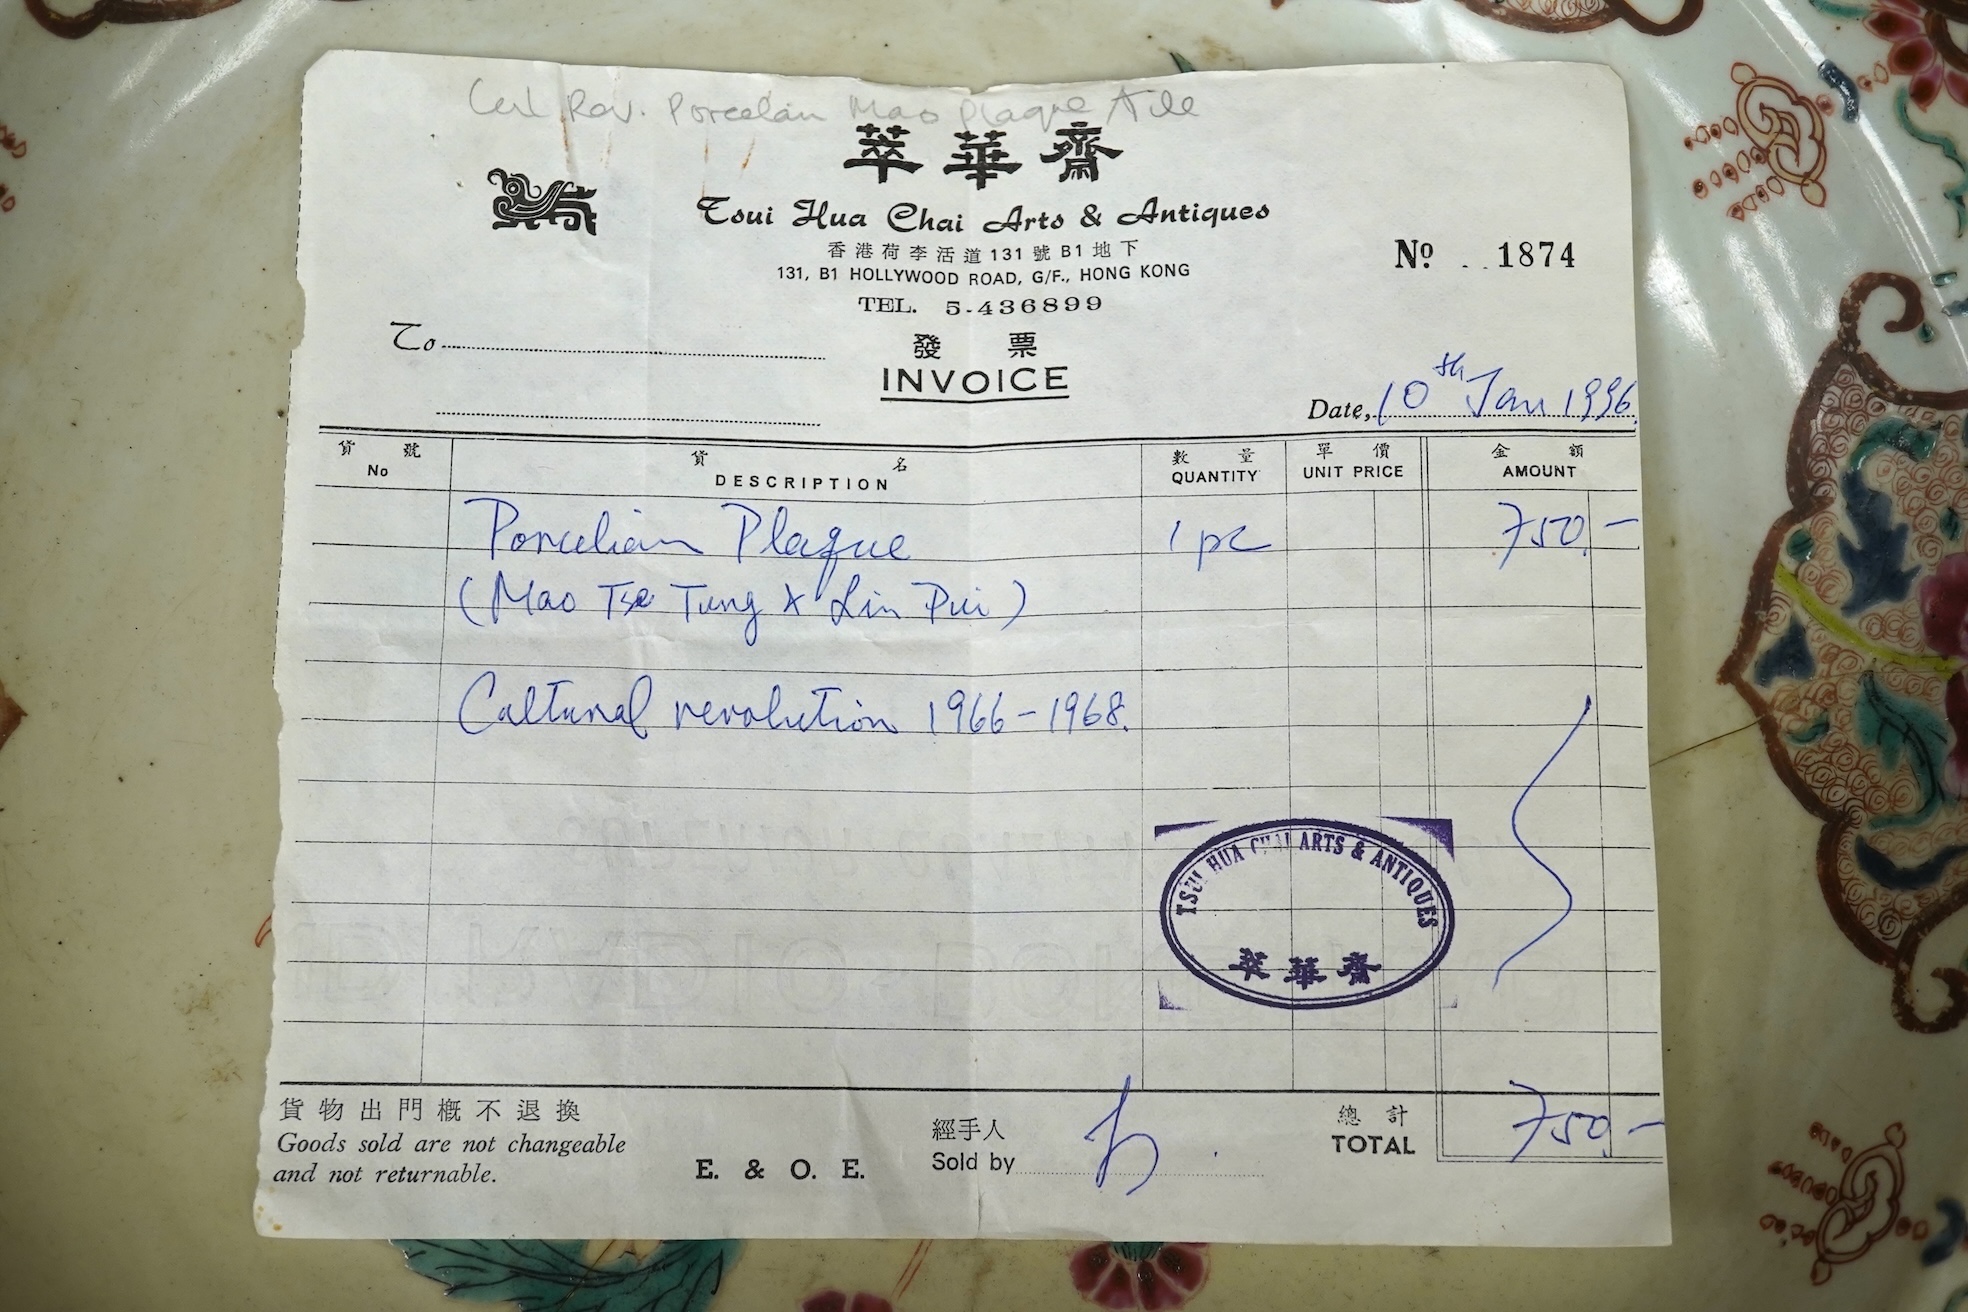 Cul Rev. Porcelain Mao Plaque
萃華齋
Tsui Hua Chai Arts & Antiques
香港荷李活道131號B1地下
131, B1 HOLLYWOOD ROAD, G/F., HONG KONG
TEL. 5-436899
Nº 1874
To
發票
INVOICE
Date, 10th Jan 1996.
貨號 貨名 數量 單價 金額
No DESCRIPTION QUANTITY UNIT PRICE AMOUNT
Porcelian Plaque 1 pc 750.-
(Mao Tse Tung & Lin Piu)
Cultural revolution 1966-1968.
TSUI HUA CHAI ARTS & ANTIQUES
萃華齋
貨物出門概不退換
Goods sold are not changeable
and not returnable.
E. & O. E.
經手人
Sold by
總計
TOTAL 750.-